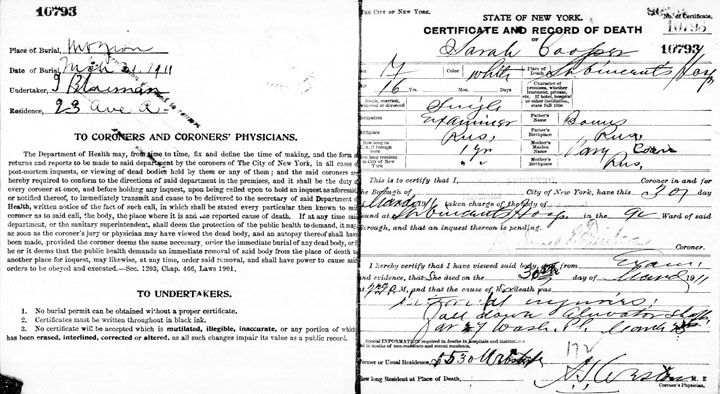 10793
Place of Burial, Mt Zion
Date of Burial, Mch 31, 1911
Undertaker,
Residence, 23 Ave A
TO CORONERS AND CORONERS' PHYSICIANS.
The Department of Health may, from time to time, fix and define the time of making, and the form of
returns and reports to be made to said department by the coroners of The City of New York, in all cases of
post-mortem inquests, or viewing of dead bodies held by them or any of them; and the said coroners are
hereby required to conform to the directions of said department in the premises, and it shall be the duty of
every coroner at once, and before holding any inquest, upon being called upon to hold an inquest as aforesaid,
or notified thereof, to immediately transmit and cause to be delivered to the secretary of said Department of
Health, written notice of the fact of such call, in which shall be stated every particular then known to said
coroner as to said call, the body, the place where it is and the reported cause of death. If at any time said
department, or the sanitary superintendent, shall deem the protection of the public health to demand, it may
as soon as the coroner's jury or physician may have viewed the dead body, and an autopsy thereof shall have
been made, provided the coroner deems the same necessary, order the immediate burial of any dead body, or if
he or it deems that the public health demands an immediate removal of said body from the place of death to
another place for inquest, may likewise, at any time, order said removal, and shall have power to cause said
orders to be obeyed and executed.—Sec. 1203, Chap. 466, Laws 1901.
TO UNDERTAKERS.
1. No burial permit can be obtained without a proper certificate.
2. Certificates must be written throughout in black ink.
3. No certificate will be accepted which is mutilated, illegible, inaccurate, or any portion of which
has been erased, interlined, corrected or altered, as all such changes impair its value as a public record.
THE CITY OF NEW YORK.
STATE OF NEW YORK.
No. of Certificate,
10793
CERTIFICATE AND RECORD OF DEATH
OF
Sarah Cooper
10793
F Color White Place of Death St Vincents Hosp
16 Yrs. Mos. Days
Character of premises, whether tenement, private, etc. If hotel, hospital or other institution, state full title
Single, married, widowed or divorced Single
Occupation Examiner Father's Name
Birthplace Rus, Father's Birthplace Rus,
How long in U.S. if foreign born 1 yr Mother's Maiden Name
How long resident in City of New York " " Mother's Birthplace Rus,
This is to certify that I, Coroner in and for
the Borough of City of New York, have this 30 day
of March 1911 taken charge of the body of
found at St Vincents Hosp in the 9th Ward of said
Borough, and that an inquest thereon is pending.
Coroner.
I hereby certify that I have viewed said body and from Exam.
and evidence, that She died on the 30th day of March 1911
M., and that the cause of her death was
internal injuries:
Fall down elevator shaft
at 27 Wash. Pl. March
Special INFORMATION required in deaths in hospitals and institutions
and in deaths of non-residents and recent residents.
Former or Usual Residence,
172
How long Resident at Place of Death, M. D.
Coroner's Physician.